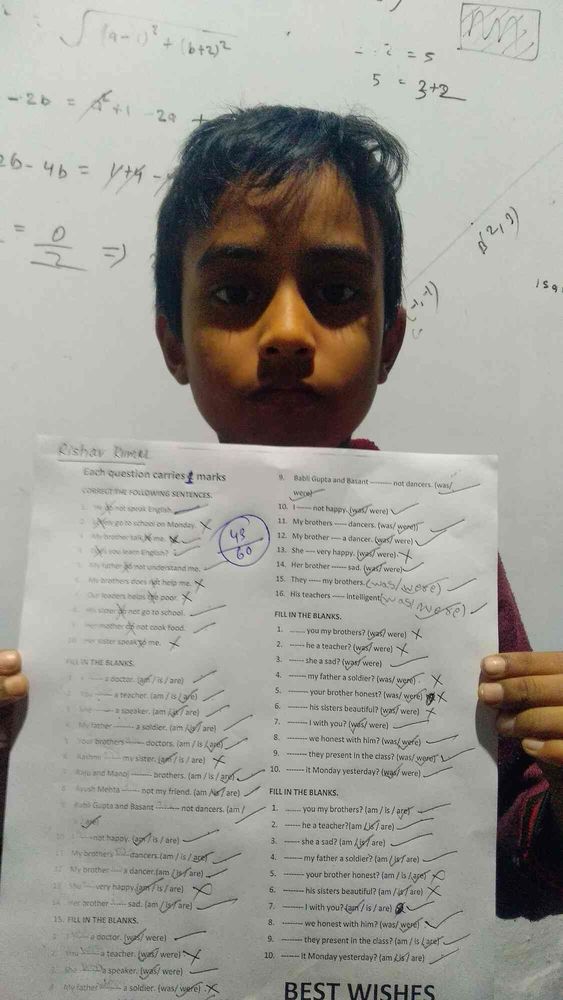 √(a-1)² + (b+2)²
= 5
5 = 3+2
-2b = a²+1 -2a +
2b - 4b = 1+4 -
= 0/2 =>
B(2,3)
(-1,-1)
Rishav Kumar
Each question carries 1 marks
CORRECT THE FOLLOWING SENTENCES.
1. He do not speak English.
2. go to school on Monday.
3. My brother talk to me.
4. you learn English?
5. My father do not understand me.
6. My brothers does not help me.
7. Our leaders helps the poor.
8. His sister do not go to school.
9. Her mother do not cook food.
10. Her sister speak to me.
FILL IN THE BLANKS.
1. I ------- a doctor. (am / is / are)
2. You ------- a teacher. (am / is / are)
3. She ------- a speaker. (am / is / are)
4. My father ------- a soldier. (am / is / are)
5. Your brothers ------- doctors. (am / is / are)
6. Rashmi ------- my sister. (am / is / are)
7. Raju and Manoj ------- brothers. (am / is / are)
8. Ayush Mehta ------- not my friend. (am / is / are)
9. Babli Gupta and Basant -------- not dancers. (am /
is / are)
10. I ----- not happy. (am / is / are)
11. My brothers ----- dancers. (am / is / are)
12. My brother ----- a dancer. (am / is / are)
13. She ---- very happy. (am / is / are)
14. Her brother ----- sad. (am / is / are)
15. FILL IN THE BLANKS.
1. I a doctor. (was/ were)
2. You a teacher. (was/ were)
3. She a speaker. (was/ were)
4. My father a soldier. (was/ were)
43/60
9. Babli Gupta and Basant -------- not dancers. (was/
were)
10. I ----- not happy. (was/ were)
11. My brothers ----- dancers. (was/ were))
12. My brother ---- a dancer. (was/ were)
13. She ---- very happy. (was/ were)
14. Her brother ------ sad. (was/ were)
15. They ----- my brothers. (was/ were)
16. His teachers ---- intelligent (was/ were)
FILL IN THE BLANKS.
1. ------- you my brothers? (was/ were)
2. ------- he a teacher? (was/ were)
3. ------- she a sad? (was/ were)
4. ------- my father a soldier? (was/ were)
5. ------- your brother honest? (was/ were)
6. ------- his sisters beautiful? (was/ were)
7. ------- I with you? (was/ were)
8. ------- we honest with him? (was/ were)
9. ------- they present in the class? (was/ were)
10. ------- it Monday yesterday? (was/ were)
FILL IN THE BLANKS.
1. ------- you my brothers? (am / is / are)
2. ------- he a teacher?(am / is / are)
3. ------- she a sad? (am / is / are)
4. ------- my father a soldier? (am / is / are)
5. ------- your brother honest? (am / is / are)
6. ------- his sisters beautiful? (am / is / are)
7. ------- I with you? (am / is / are)
8. ------- we honest with him? (was/ were)
9. ------- they present in the class? (am / is / are)
10. ------- it Monday yesterday? (am / is / are)
BEST WISHES